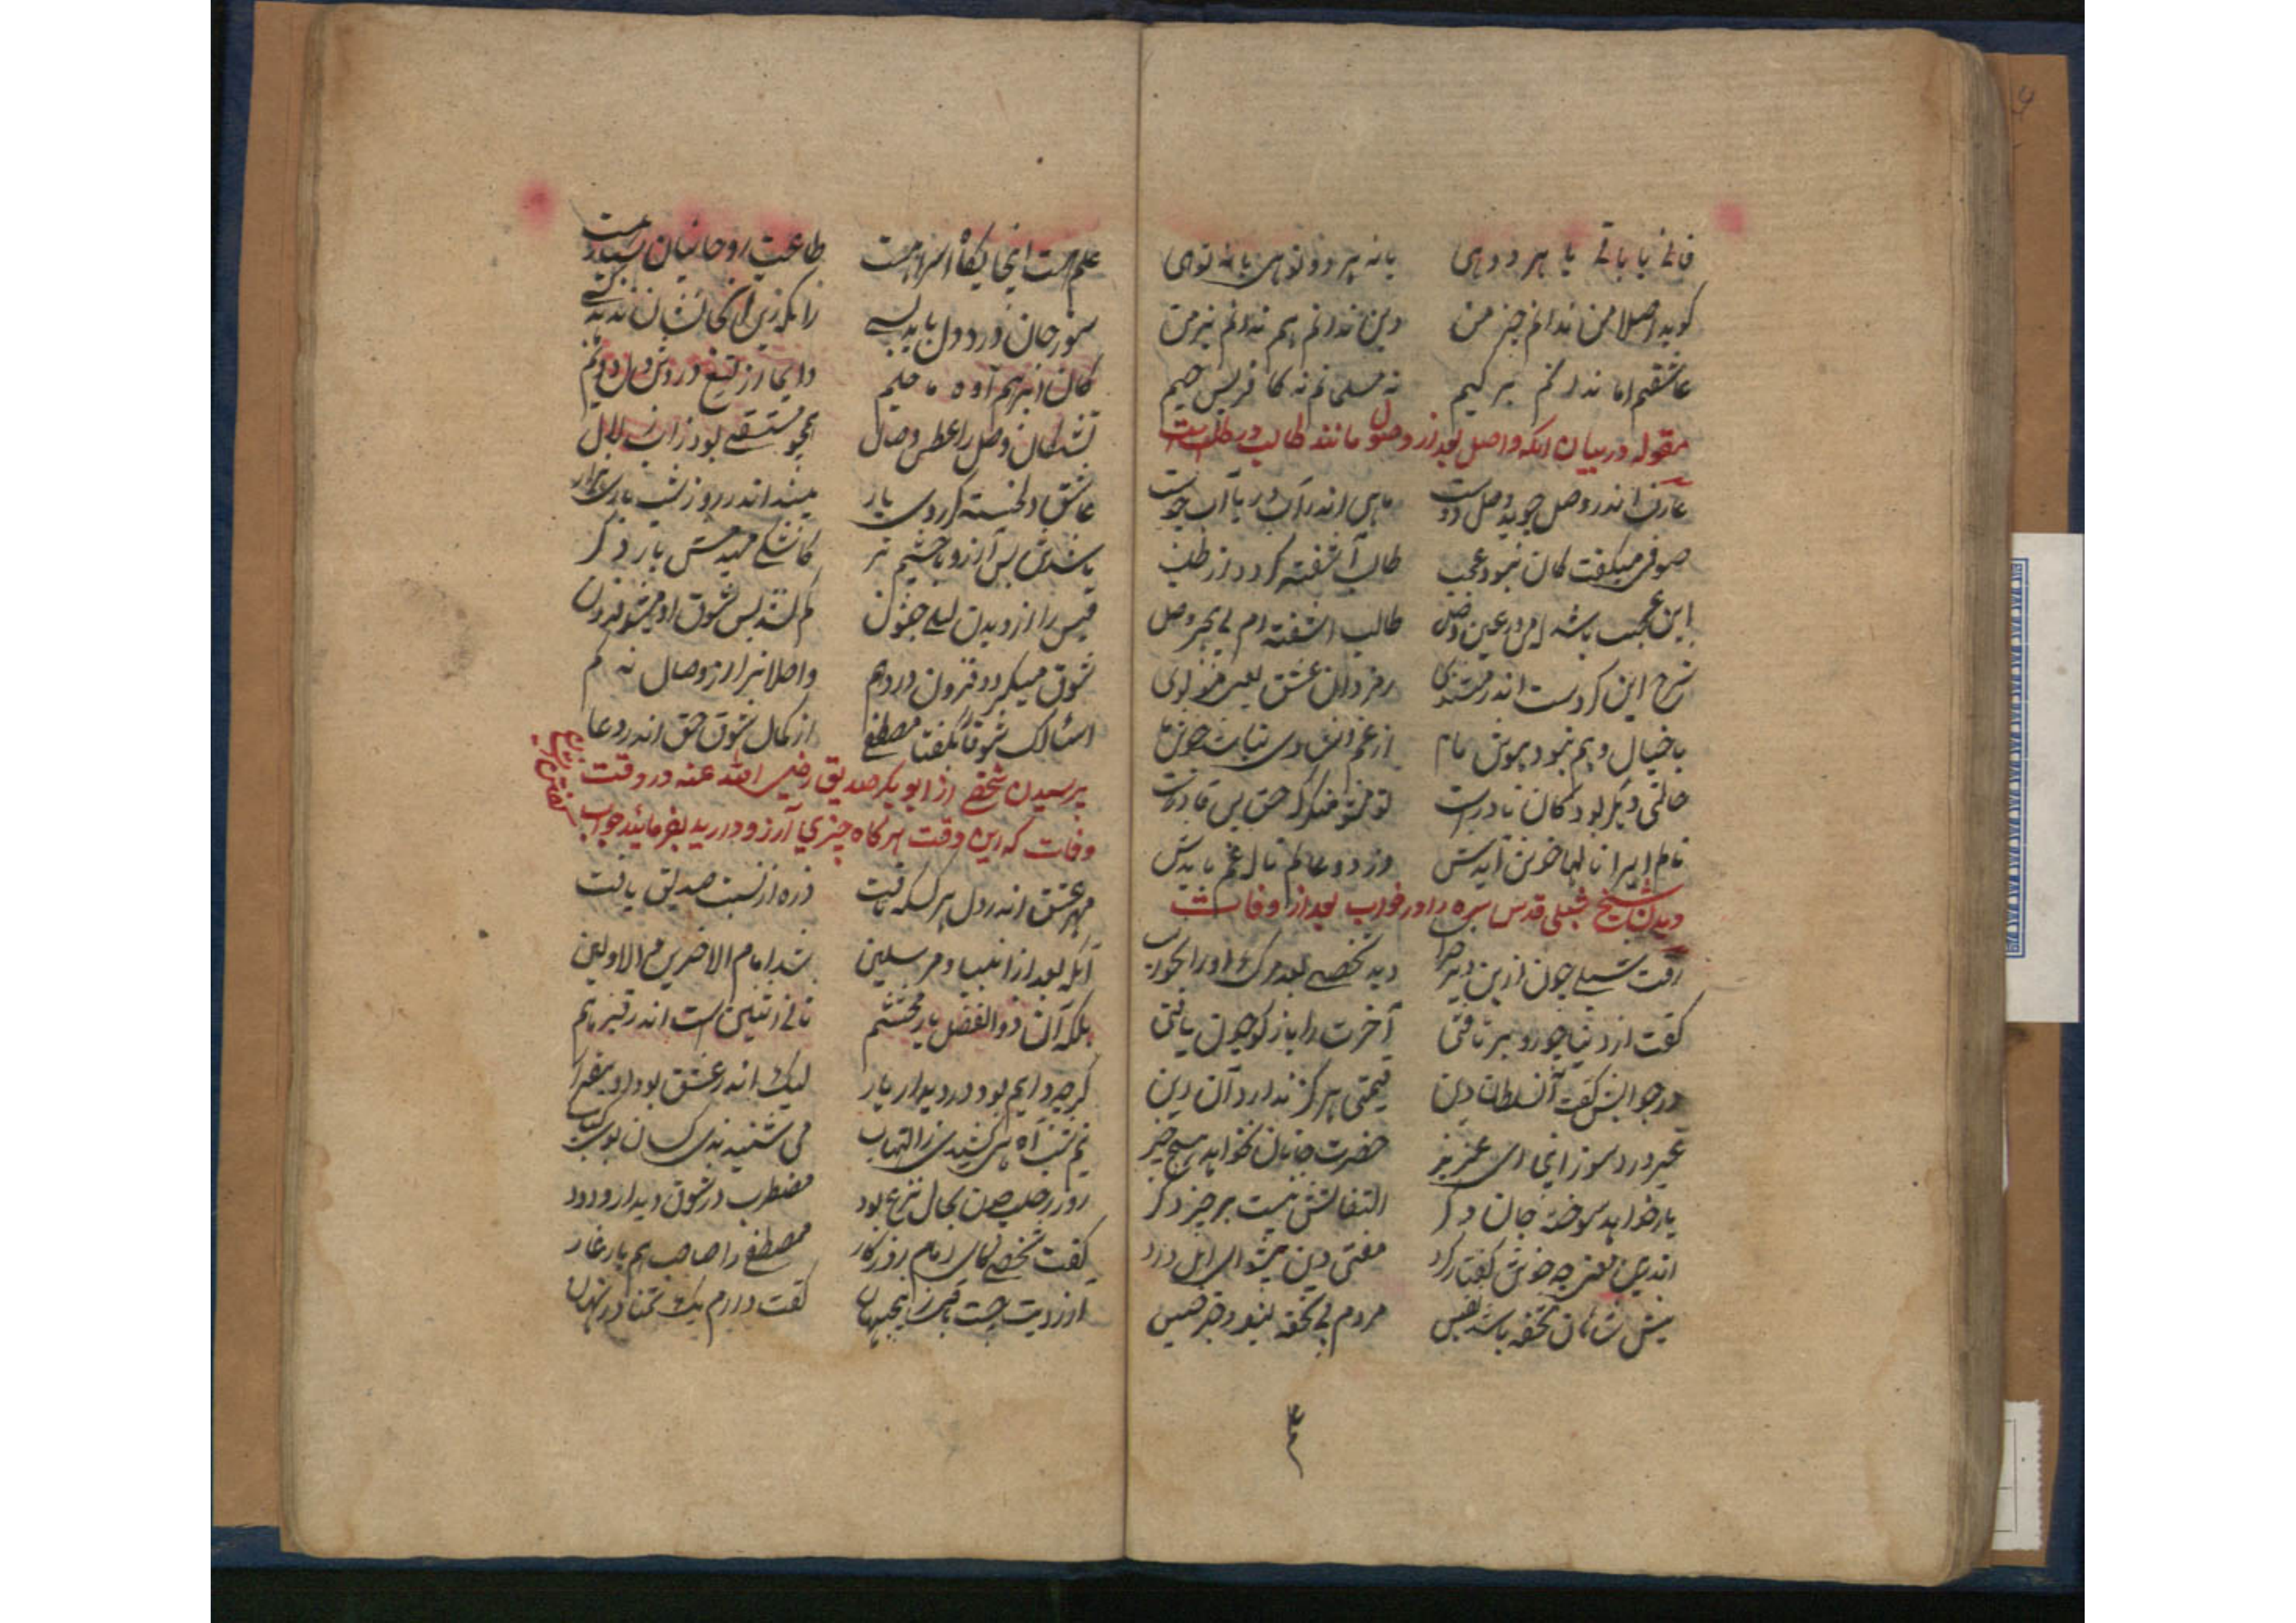 فانی یا باقی یا هر دوهی یا نه هر دو تو هی یا نه توهی
گوید اصلا من ندانم چیز من وین ندانم هم ندانم نیز من
عاشقم اما ندانم بر کیم نه مسلمانم نه کافر پس چیم
مقوله در بیان انکه واصل بعد از وصول مانند طالب در طلب است
عارف اندر وصل جوید وصل دوست ماهی اندر آب دریا آب جوست
صوفی میگفت کان نبود عجب طالب آشفته گردد از طلب
این عجب باشد که من در عین وصل طالب آشفته ام بی بحر وصل
شرح این کردست اندر مثنوی رمز دان عشق یعنی مولوی
با خیال و وهم نبود هوش ما
حالتی دیگر بود کان نادرست تو مشو منکر که حق بس قادرست
خوش آیدش وز دو عالم ناله و غم بایدش
دیدن شیخ شبلی قدس سره را در خواب بعد از وفات
رفت شبلی چون ازین دیر خراب دید شخصی بعد مرگ او را بخواب
گفت از دنیا چو رو بر تافتی آخرت را باز گو چون یافتی
در جوابش گفت آن سلطان دین قیمتی هرگز ندارد آن و این
غیر درد و سوز اینجا ای عزیز حضرت جانان نخواهد هیچ چیز
یار خواهد سوخته جان و جگر التفاتش نیست بر چیز دگر
اندرین معنی چه خوش گفتار کرد مفتی دین پیشوای اهل درد
پیش شاهان تحفه باشد نفیس مردم بی تحفه نبود جز خسیس
علم هست اینجایگاه اسرار هست طاعت روحانیان بسیار هست
سوز جان و درد دل باید بسی زانکه زین اینجا نشان ندهد کسی
تشنگان وصل را عطش وصال همچو مستسقی بود ز آب زلال
عاشق دلخسته گر روی یار بیند اندر روز و شب باری هزار
باشدش بس آرزو با چشم تر کاشکی می دیدمش بار دگر
قیس را از دیدن لیلی جنون کم نشد بس شوق او میشد فزون
شوق میگردد فزون در دم واصلانرا از وصال نه کم
اسئالک شوقا بگفتا مصطفی از کمال شوق حق اندر دعا
پرسیدن شخصی از ابو بکر صدیق رضی الله عنه در وقت نزع
وفات که این وقت هرگاه چیزی آرزو دارید بفرمائید جواب گفتن
مهر عشق اندر دل هر کسکه تافت ذره از نسبت صدیق یافت
آنکه بعد از انبیا و مرسلین شد امام الاخرین و الاولین
بلکه آن ذو الفضل یار محتشم ثانی اثنین است اندر قبر هم
گرچه دایم بود در دیدار یار لیک اندر عشق بود او بیقرار
نیم شب آه کشیدی ز التهاب می شنیدندی کسان بوی کباب
روز رحلت چون بحال نزع بود مضطرب در شوق دیدار ودود
گفت شخصی کای امام روزگار مصطفی را صاحب و هم یار غار
آرزویت چیست باقی در جهان گفت دارم یک تمنا در نهان